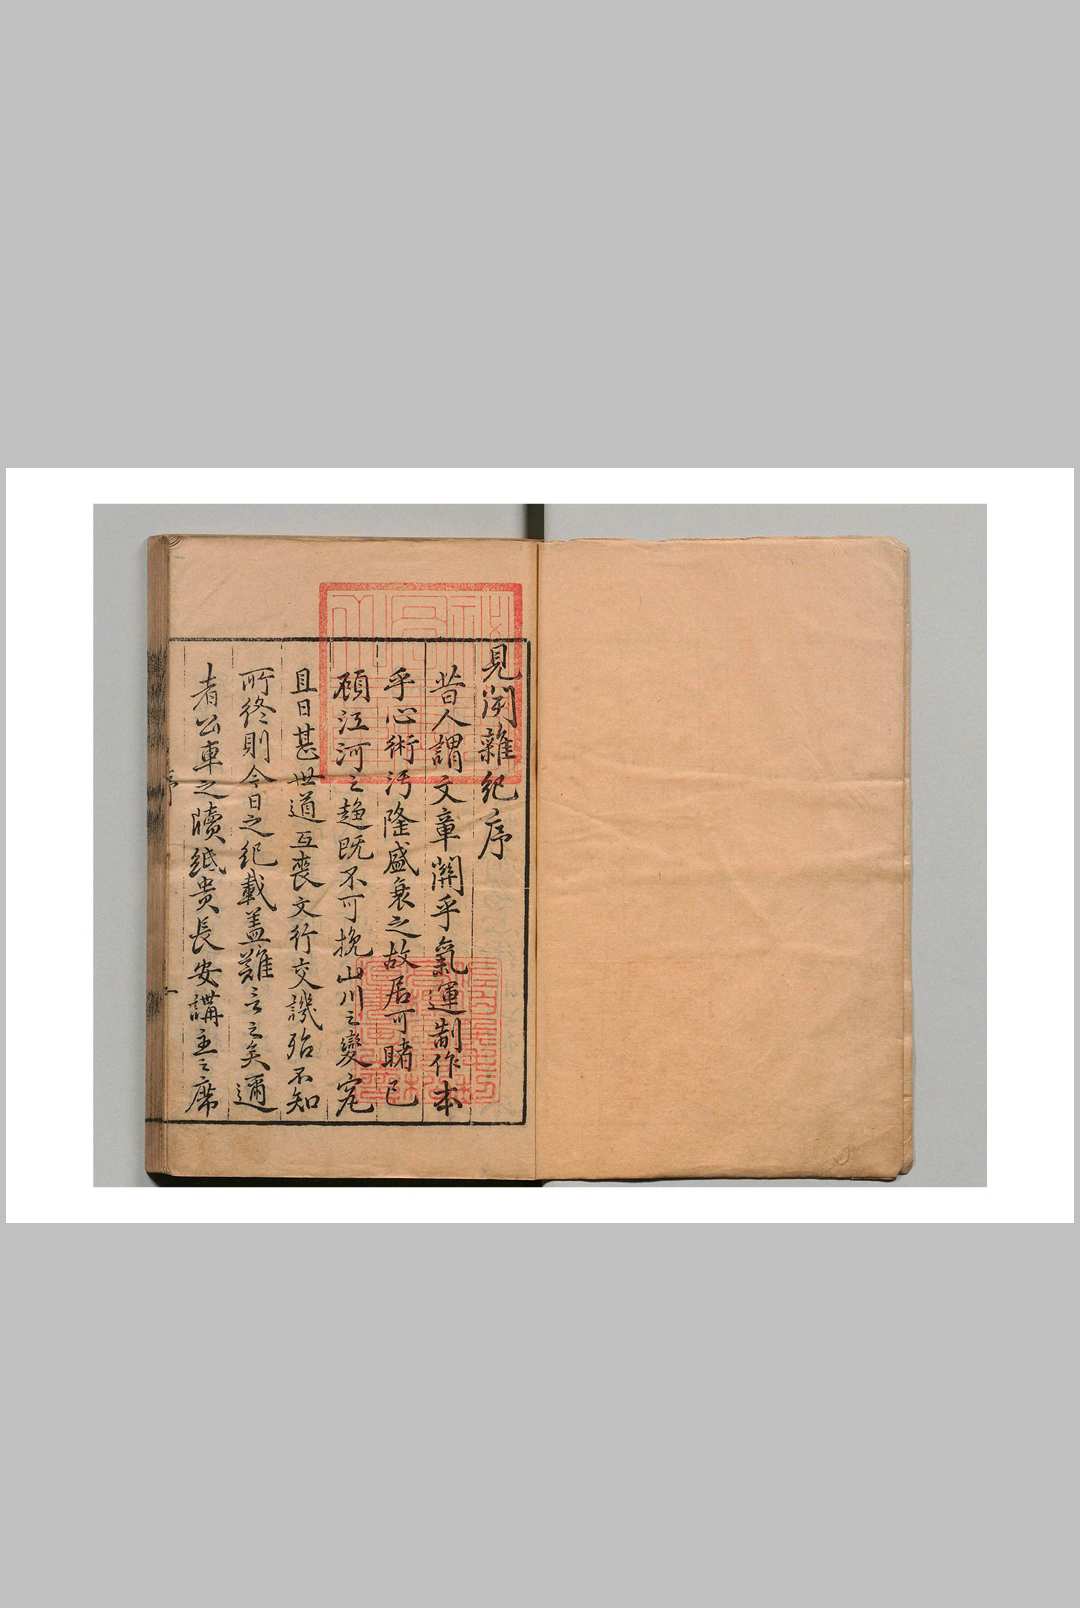 見聞雜紀序
昔人謂文章關乎氣運制作本
乎心術汚隆盛衰之故居可睹已
顧江河之趨既不可挽山川之變究
且日甚世道互喪文行交譏殆不知
所終則今日之紀載蓋難言之矣邇
者公車之牘紙貴長安講主之席
序
一